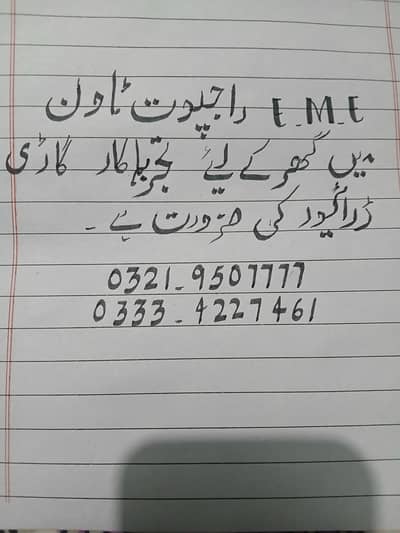 E.M.E راجپوت ٹاون
میں گھر کے لیۓ تجربہ کار گاڑی
ڈرائیور کی ضرورت ہے ۔
0321-9507777
0333-4227461